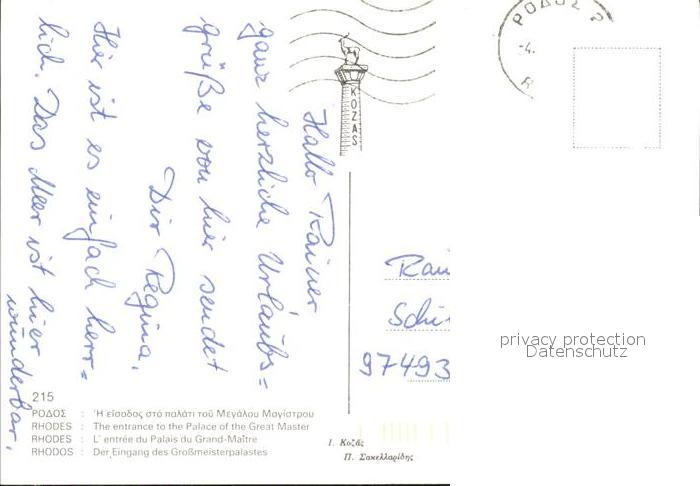 Hallo Rainer
ganz herzliche Urlaubs=
grüße von hier sendet
Dir Regina.
Hier ist es einfach herr=
lich. Das Meer ist hier
wunderbar.
ΡΟΔΟΣ
-4.
KOZAS
Rai
Schi
97493
privacy protection
Datenschutz
215
ΡΟΔΟΣ : Ἡ εἴσοδος στό παλάτι τοῦ Μεγάλου Μαγίστρου
RHODES : The entrance to the Palace of the Great Master
RHODES : L' entrée du Palais du Grand-Maître
RHODOS : Der Eingang des Großmeisterpalastes
Ι. Κοζάς
Π. Σακελλαρίδης